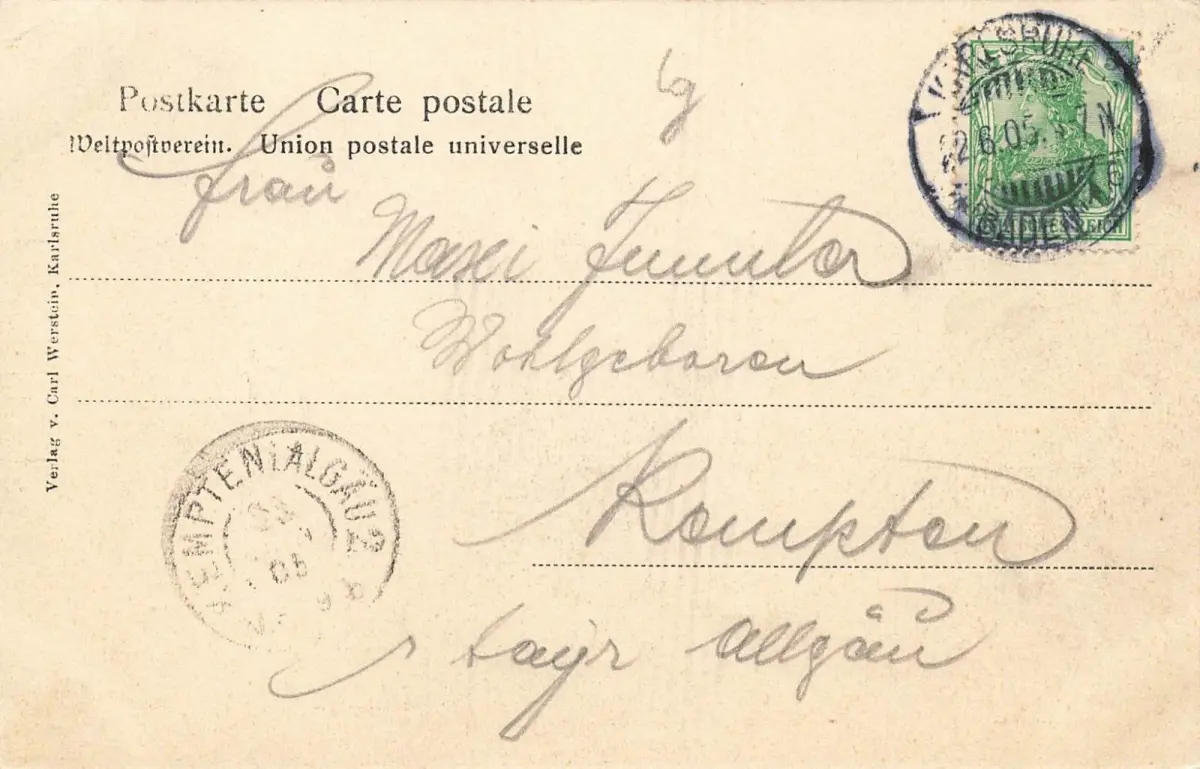 Postkarte Carte postale
Weltpostverein. Union postale universelle
Frau
Maxi
Wohlgeboren
Kempten
bayr Allgäu
Verlag v. Carl Werstein, Karlsruhe
KARLSRUHE
22.6.05. 7N
BADEN
KEMPTEN i ALGÄU 2
05